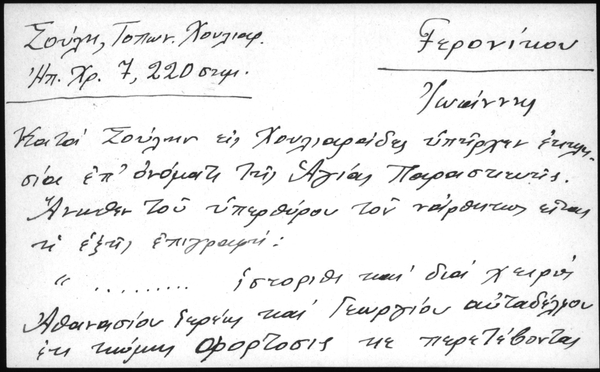 Σούλη, Τοπων. Χουλιαρ.
Ἠπ. Χρ. 7, 220 σημ.
Γερονίκου
Ἰωάννης
Κατά Σούλην εἰς Χουλιαράδες ὑπῆρχεν ἐκκλη-
σία ἐπ' ὀνόματι τῆς Ἁγίας Παρασκευῆς.
Ἄνωθεν τοῦ ὑπερθύρου τοῦ νάρθηκος εἶναι
ἡ ἑξῆς ἐπιγραφή:
" ......... ἱστορίθι καί διά χειρός
Ἀθανασίου ἱερέως καί Γεωργίου αὐταδέλφου
ἐκ κώμης Φορτόσις κε περετέβοντας